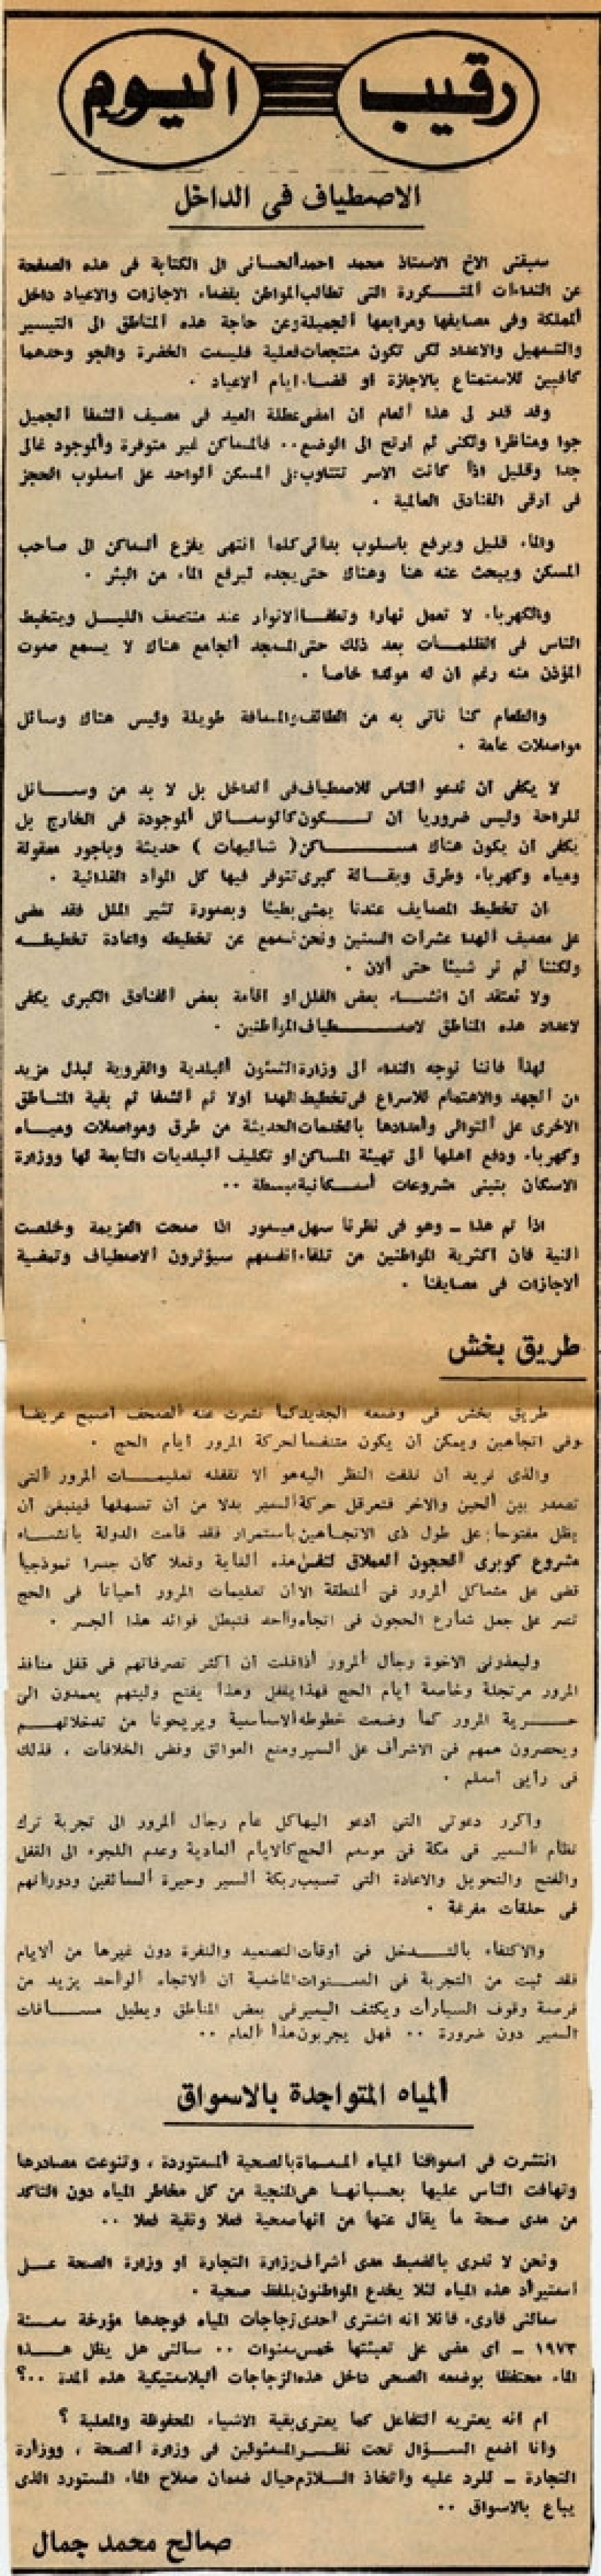 رقيب اليوم
الاصطياف فى الداخل
سبقنى الاخ الاستاذ محمد احمد الحسانى الى الكتابة فى هذه الصفحة
عن النداءات المتكررة التى تطالب المواطن بقضاء الاجازات والاعياد داخل
المملكة وفى مصايفها ومرابعها الجميلة وعن حاجة هذه المناطق الى التيسير
والتسهيل والاعداد لكى تكون منتجعات فعلية فليست الخضرة والجو وحدهما
كافيين للاستمتاع بالاجازة او قضاء ايام الاعياد .
وقد قدر لى هذا العام ان امضى عطلة العيد فى مصيف الشفا الجميل
جوا ومناظرا ولكنى لم ارتح الى الوضع .. فالمساكن غير متوفرة والموجود غالى
جدا وقليل اذا كانت الاسر تتناوب فى المسكن الواحد على اسلوب الحجز
فى ارقى الفنادق العالمية .
والماء قليل ويرفع باسلوب بدائى كلما انتهى يفزع الساكن الى صاحب
المسكن ويبحث عنه هنا وهناك حتى يجده ليرفع الماء من البئر .
والكهرباء لا تعمل نهارا وتطفأ الانوار عند منتصف الليل ويتخبط
الناس فى الظلمات بعد ذلك حتى المسجد الجامع هناك لا يسمع صوت
المؤذن منه رغم ان له مولدا خاصا .
والطعام كنا ناتى به من الطائف والمسافة طويلة وليس هناك وسائل
مواصلات عامة .
لا يكفى ان ندعو الناس للاصطياف فى الداخل بل لا بد من وسائل
للراحة وليس ضروريا ان تكون كالوسائل الموجودة فى الخارج بل
يكفى ان يكون هناك مساكن ( شاليهات ) حديثة وباجور معقولة
ومياه وكهرباء وطرق وبقالة كبرى تتوفر فيها كل المواد الغذائية .
ان تخطيط المصايف عندنا يمشى بطيئا وبصورة تثير الملل فقد مضى
على مصيف الهدا عشرات السنين ونحن نسمع عن تخطيطه واعادة تخطيطه
ولكننا لم نر شيئا حتى الان .
ولا نعتقد ان انشاء بعض الفلل او اقامة بعض الفنادق الكبرى يكفى
لاعداد هذه المناطق لاصطياف المواطنين .
لهذا فاننا نوجه النداء الى وزارة الشئون البلدية والقروية لبذل مزيد
من الجهد والاهتمام للاسراع فى تخطيط الهدا اولا ثم الشفا ثم بقية المناطق
الاخرى على التوالى وامدادها بالخدمات الحديثة من طرق ومواصلات ومياه
وكهرباء ودفع اهلها الى تهيئة المساكن او تكليف البلديات التابعة لها ووزارة
الاسكان بتبنى مشروعات اسكانية مبسطة ..
اذا تم هذا ـ وهو فى نظرنا سهل ميسور اذا صحت العزيمة وخلصت
النية فان اكثرية المواطنين من تلقاء انفسهم سيؤثرون الاصطياف وتمضية
الاجازات فى مصايفنا .
طريق بخش
طريق بخش فى وضعه الجديد كما نشرت عنه الصحف اصبح عريضا
وفى اتجاهين ويمكن ان يكون متنفسا لحركة المرور ايام الحج .
والذى نريد ان نلفت النظر اليه هو الا تقفله تعليمات المرور التى
تصدر بين الحين والاخر فتعرقل حركة السير بدلا من ان تسهلها فينبغى ان
يظل مفتوحا على طول ذى الاتجاهين باستمرار فقد قامت الدولة بانشاء
مشروع كوبرى الحجون العملاق لنفس هذه الغاية وفعلا كان جسرا نموذجيا
قضى على مشاكل المرور فى المنطقة الا ان تعليمات المرور احيانا فى الحج
تصر على جعل شارع الحجون فى اتجاه واحد فتبطل فوائد هذا الجسر .
وليعذرنى الاخوة رجال المرور اذا قلت ان اكثر تصرفاتهم فى قفل منافذ
المرور مرتجلة وخاصة ايام الحج فهذا يقفل وهذا يفتح وليتهم يعمدون الى
حرية المرور كما وضعت خطوطه الاساسية ويريحونا من تدخلاتهم
ويحصرون همهم فى الاشراف على السير ومنع العوائق وفض الخلافات . فذلك
فى رأيى اسلم .
واكرر دعوتى التى ادعو اليها كل عام رجال المرور الى تجربة ترك
نظام السير فى مكة فى موسم الحج كالايام العادية وعدم اللجوء الى القفل
والفتح والتحويل والاعادة التى تسبب ربكة السير وحيرة السائقين ودورانهم
فى حلقات مفرغة .
والاكتفاء بالتدخل فى اوقات التصعيد والنفرة دون غيرها من الايام
فقد ثبت من التجربة فى السنوات الماضية ان الاتجاه الواحد يزيد من
فرصة وقوف السيارات ويكثف السير فى بعض المناطق ويطيل مسافات
السير دون ضرورة .. فهل يجربون هذا العام ..
المياه المتواجدة بالاسواق
انتشرت فى اسواقنا المياه المسماة بالصحية المستوردة ، وتنوعت مصادرها
وتهافت الناس عليها بحسبانها هى المنجية من كل مخاطر المياه دون التاكد
من مدى صحة ما يقال عنها من انها صحية فعلا ونقية فعلا ..
ونحن لا ندرى بالضبط مدى اشراف وزارة التجارة او وزارة الصحة على
استيراد هذه المياه لئلا يخدع المواطنون بلفظ صحية .
سالنى قارىء قائلا انه اشترى احدى زجاجات المياه فوجدها مؤرخة سنة
١٩٧٣ ـ اى مضى على تعبئتها خمس سنوات .. سالنى هل يظل هذا
الماء محتفظا بوضعه الصحى داخل هذه الزجاجات البلاستيكية هذه المدة ..؟
ام انه يعتريه التفاعل كما يعترى بقية الاشياء المحفوظة والمعلبة ؟
وانا اضع السؤال تحت نظر المسئولين فى وزارة الصحة ، ووزارة
التجارة ـ للرد عليه واتخاذ اللازم حيال ضمان صلاح الماء المستورد الذى
يباع بالاسواق ..
صالح محمد جمال